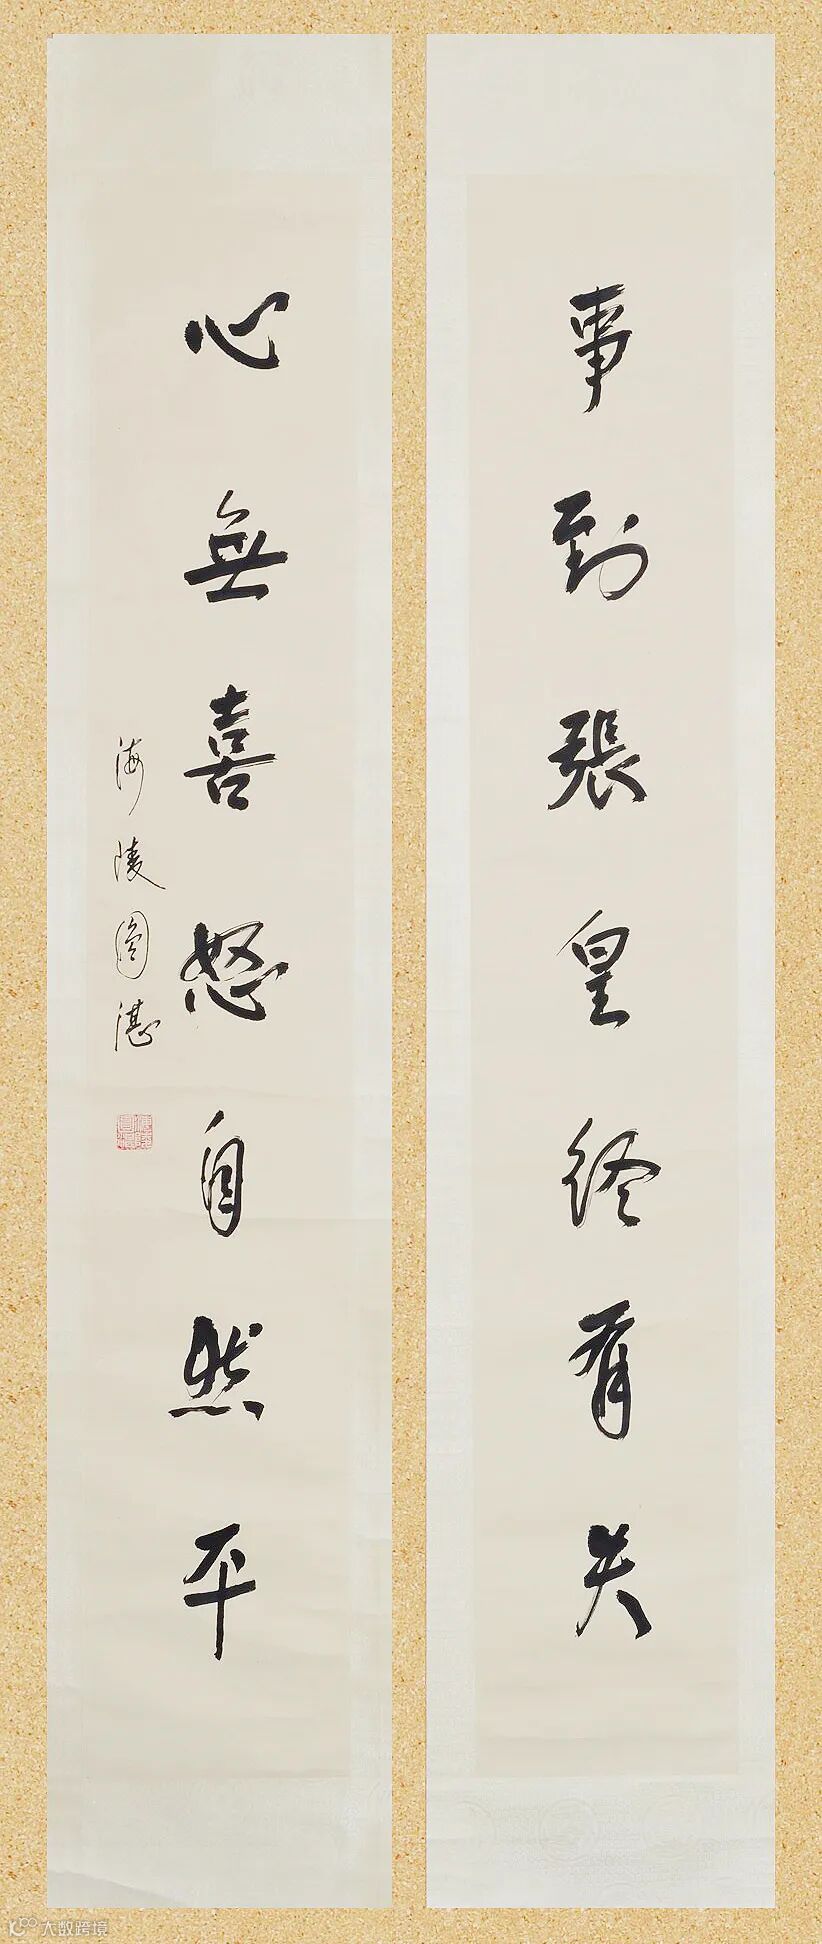 事到張皇終有失
心無喜怒自然平
海陵圓湛
大数跨境